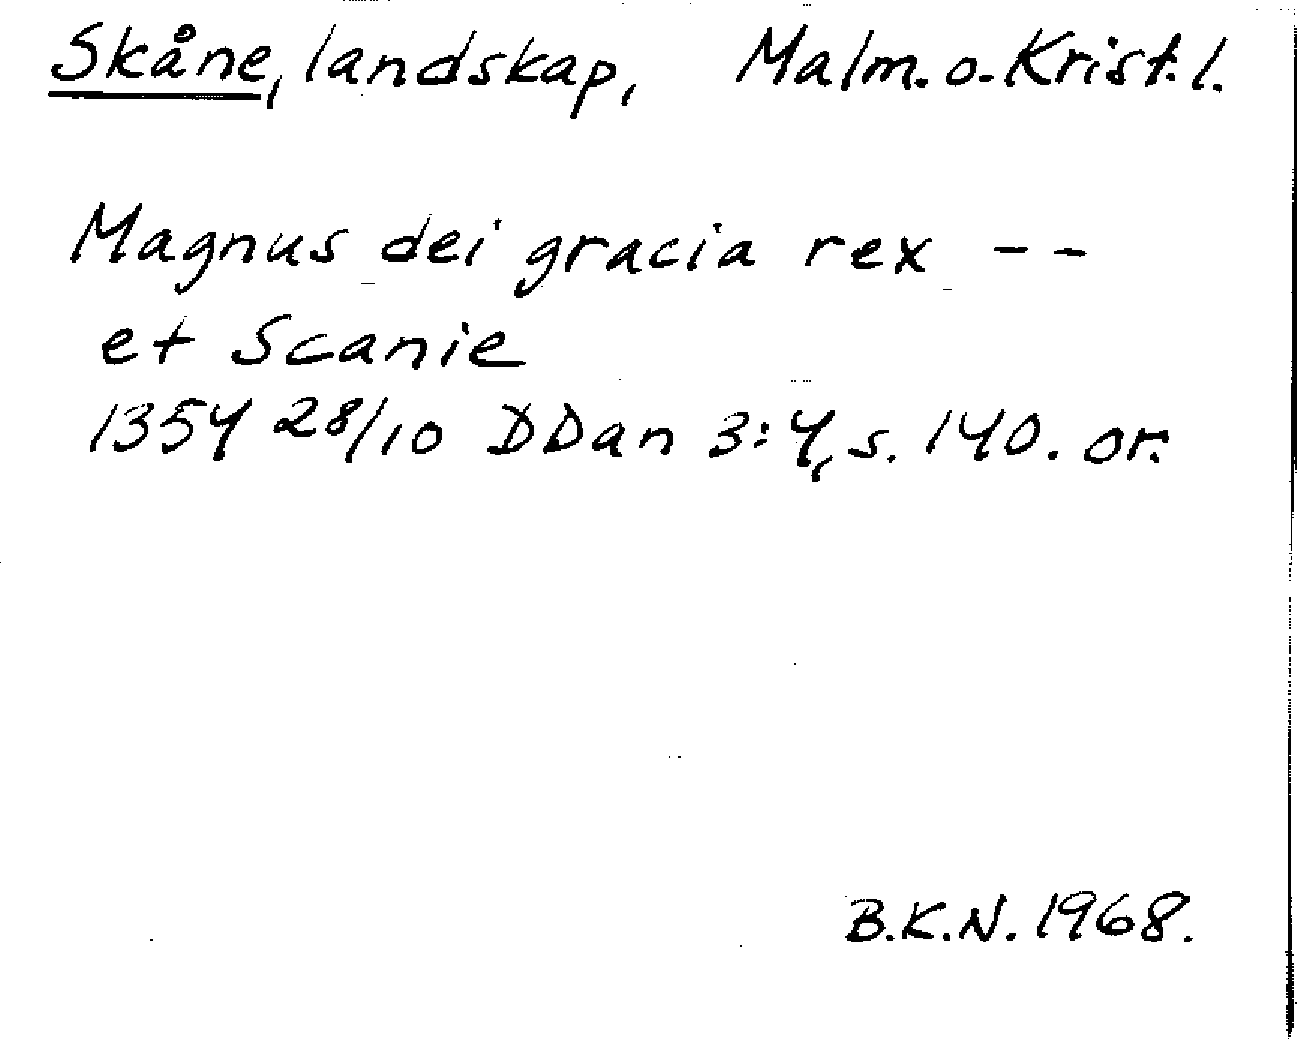 Skåne, landskap, Malm. o. Krist. l.
Magnus dei gracia rex - -
et Scanie
1354 28/10 DDan 3:4, s. 140. or.
B.K.N. 1968.